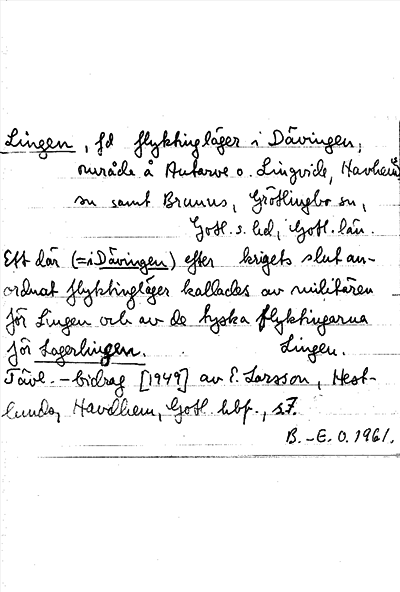 Lingen, fd flyktingläger i Dävingen,
område å Autsarve o. Lingvide, Havdhem
sn samt Brunns, Grötlingbo sn,
Gotl. s. hd, Gotl. län.
Ett där (=i Dävingen) efter krigets slut an-
ordnat flyktingläger kallades av militären
för Lingen och av de tyska flyktingarna
för Lagerlingen. Lingen.
Tävl.-bidrag [1949] av E. Larsson, Hest-
lunda, Havdhem, Gotl. hbf., s.7.
B.-E. O. 1961.